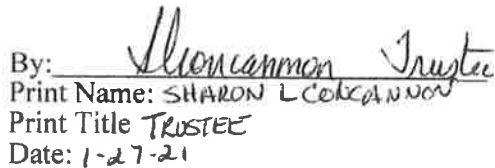 By: SConcannon Trustee
Print Name: SHARON L CONCANNON
Print Title TRUSTEE
Date: 1-27-21